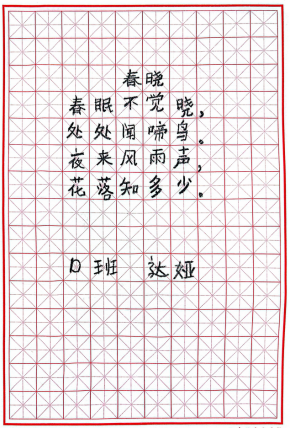 春晓
春眠不觉晓，
处处闻啼鸟。
夜来风雨声，
花落知多少。
D班 达娅